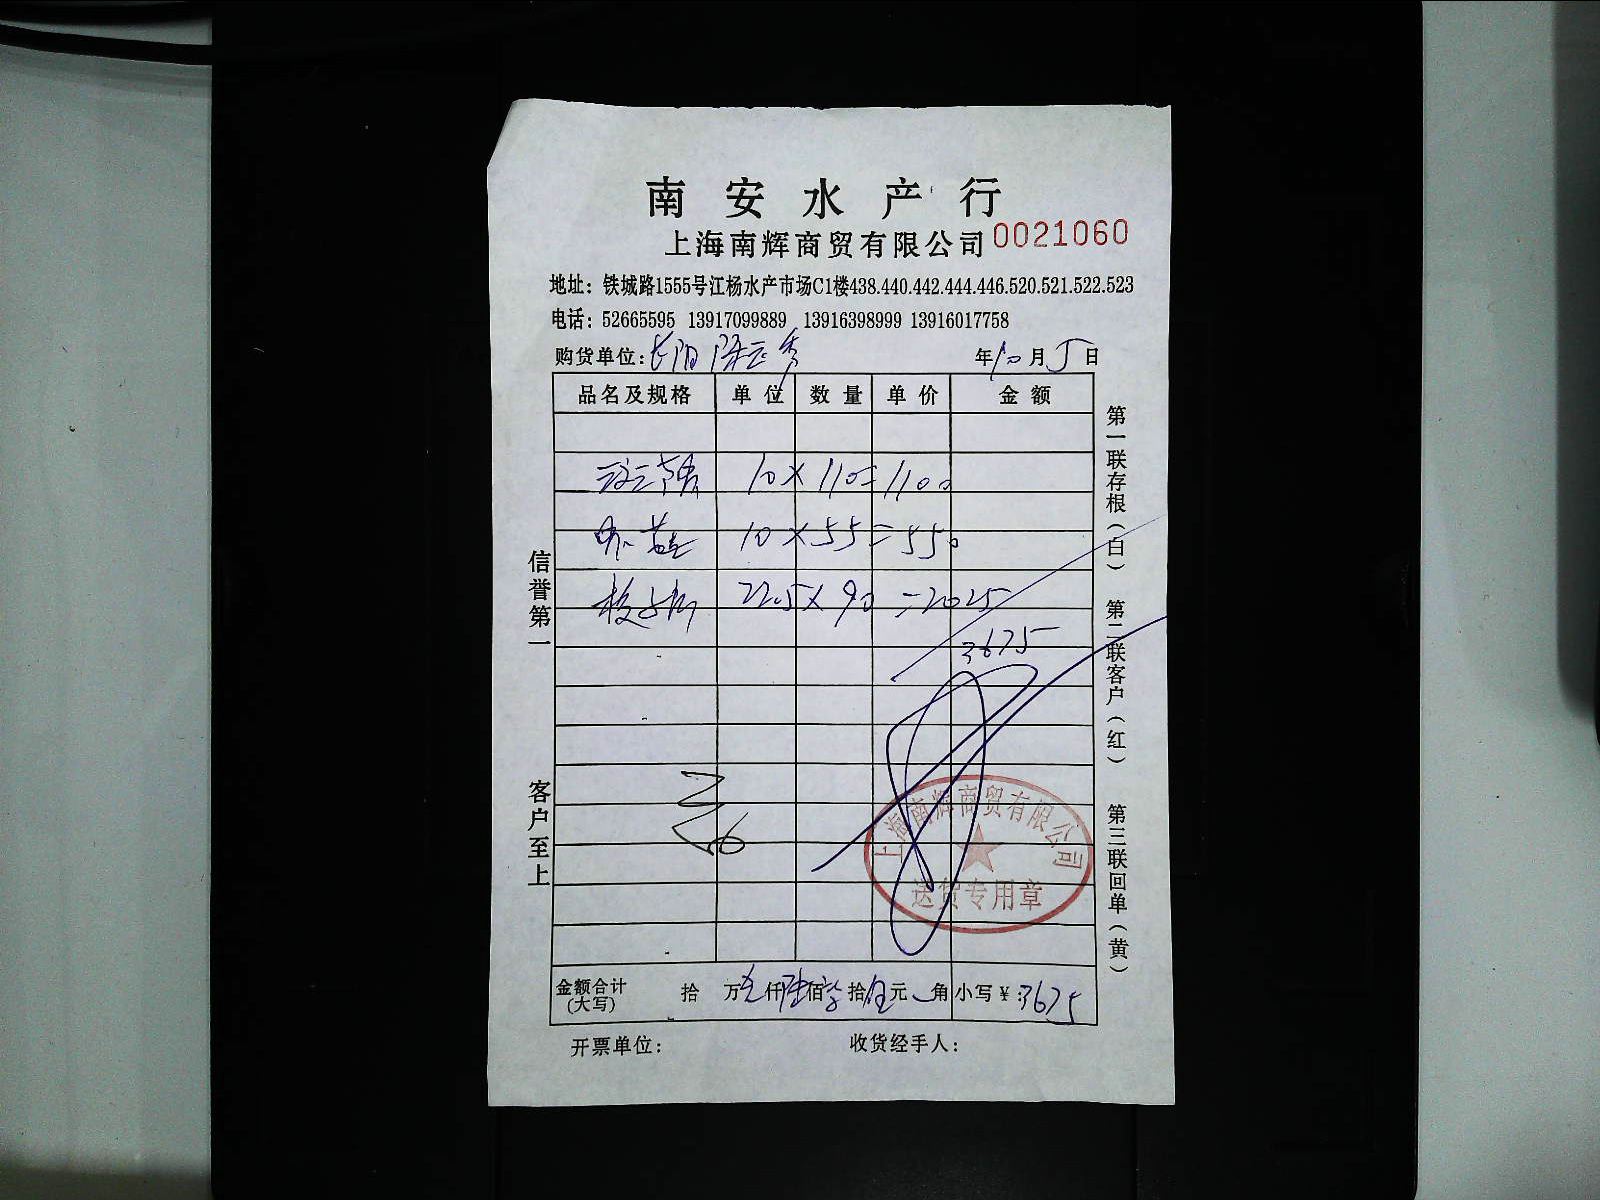 南安水产行
上海南辉商贸有限公司 0021060
地址：铁城路1555号江杨水产市场C1楼438.440.442.444.446.520.521.522.523
电话：52665595 13917099889 13916398999 13916017758
购货单位： 年10月5日
品名及规格 单位 数量 单价 金额
10×110=1100
10×55=550
22.5×90=2025
3675
信誉第一
客户至上
第一联存根（白） 第二联客户（红） 第三联回单（黄）
上海南辉商贸有限公司
送货专用章
金额合计（大写） 拾 万 仟陆佰 拾伍元 角 小写￥：3675
开票单位： 收货经手人：